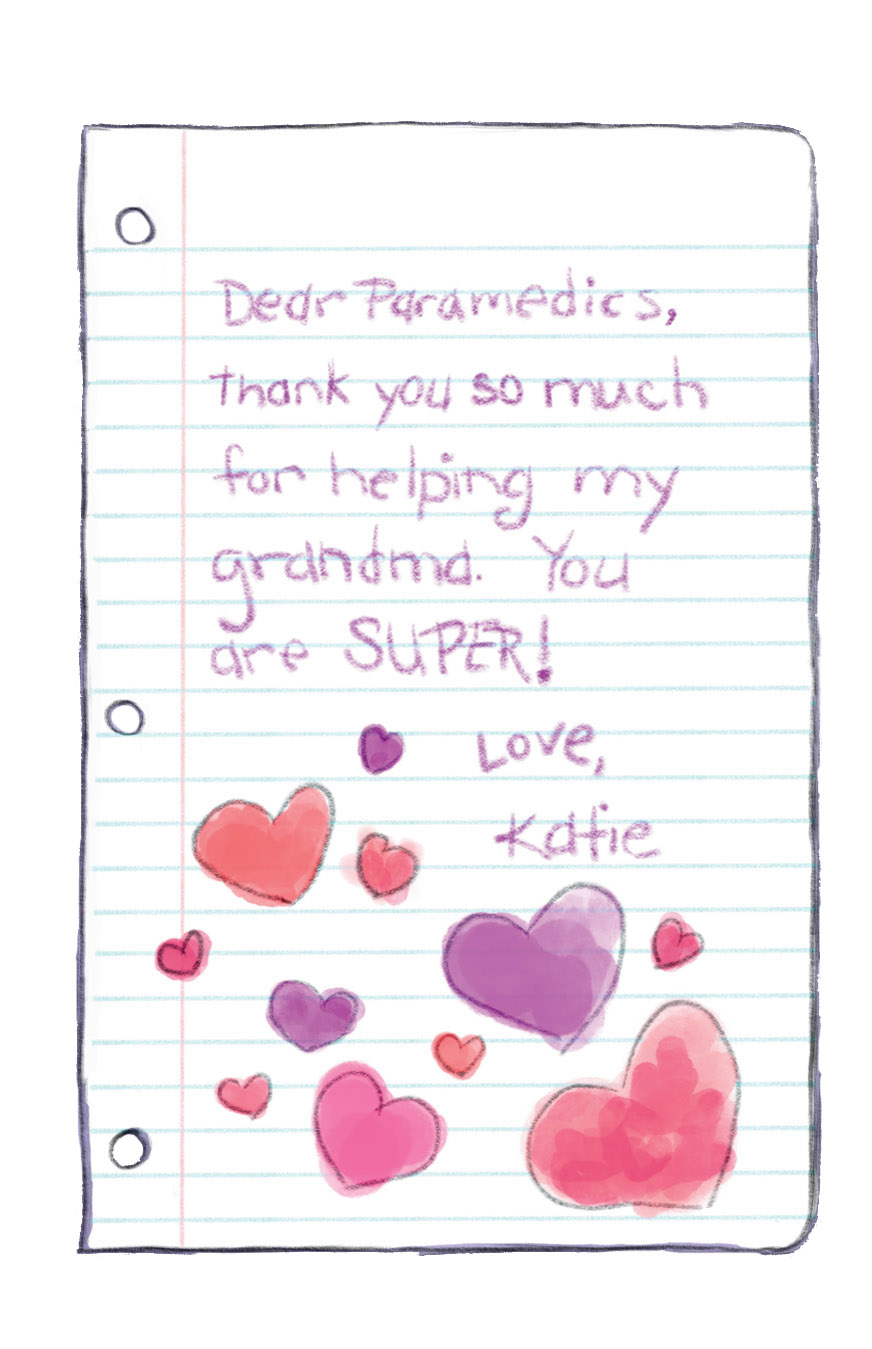 Dear Paramedics,
thank you so much
for helping my
grandma. You
are SUPER!
Love,
Katie